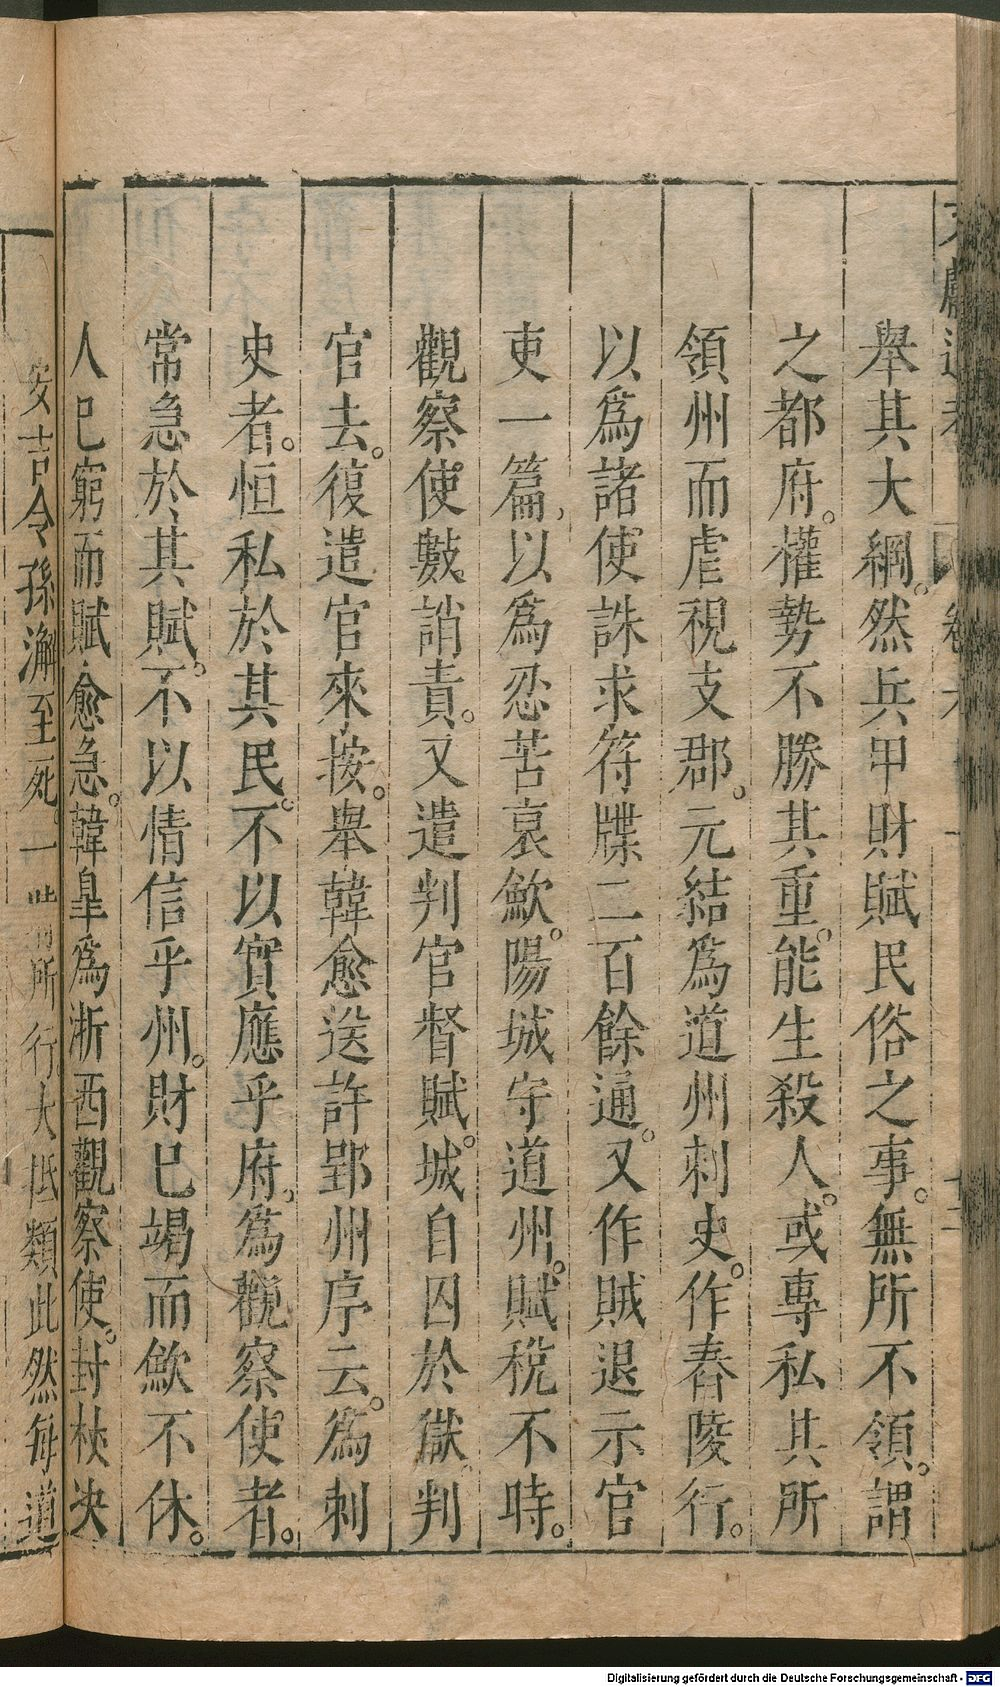 舉其大綱。然兵甲財賦民俗之事。無所不領。謂
之都府。權勢不勝其重。能生殺人。或專私其所
領州而虐視支郡。元結爲道州刺史。作舂陵行。
以爲諸使誅求符牒二百餘通。又作賊退示官
吏一篇,以爲忍苦哀歛。陽城守道州。賦稅不時。
觀察使數誚責。又遣判官督賦。城自囚於獄。判
官去。復遣官來按。舉韓愈送許郢州序云。爲刺
史者。恒私於其民。不以實應乎府,爲觀察使者。
常急於其賦。不以情信乎州。財已竭而歛不休。
人已窮而賦愈急。韓臯爲浙西觀察使。封杖决
安吉令孫澥至死。一時所行。大抵類此然每道
Digitalisierung gefördert durch die Deutsche Forschungsgemeinschaft - DFG